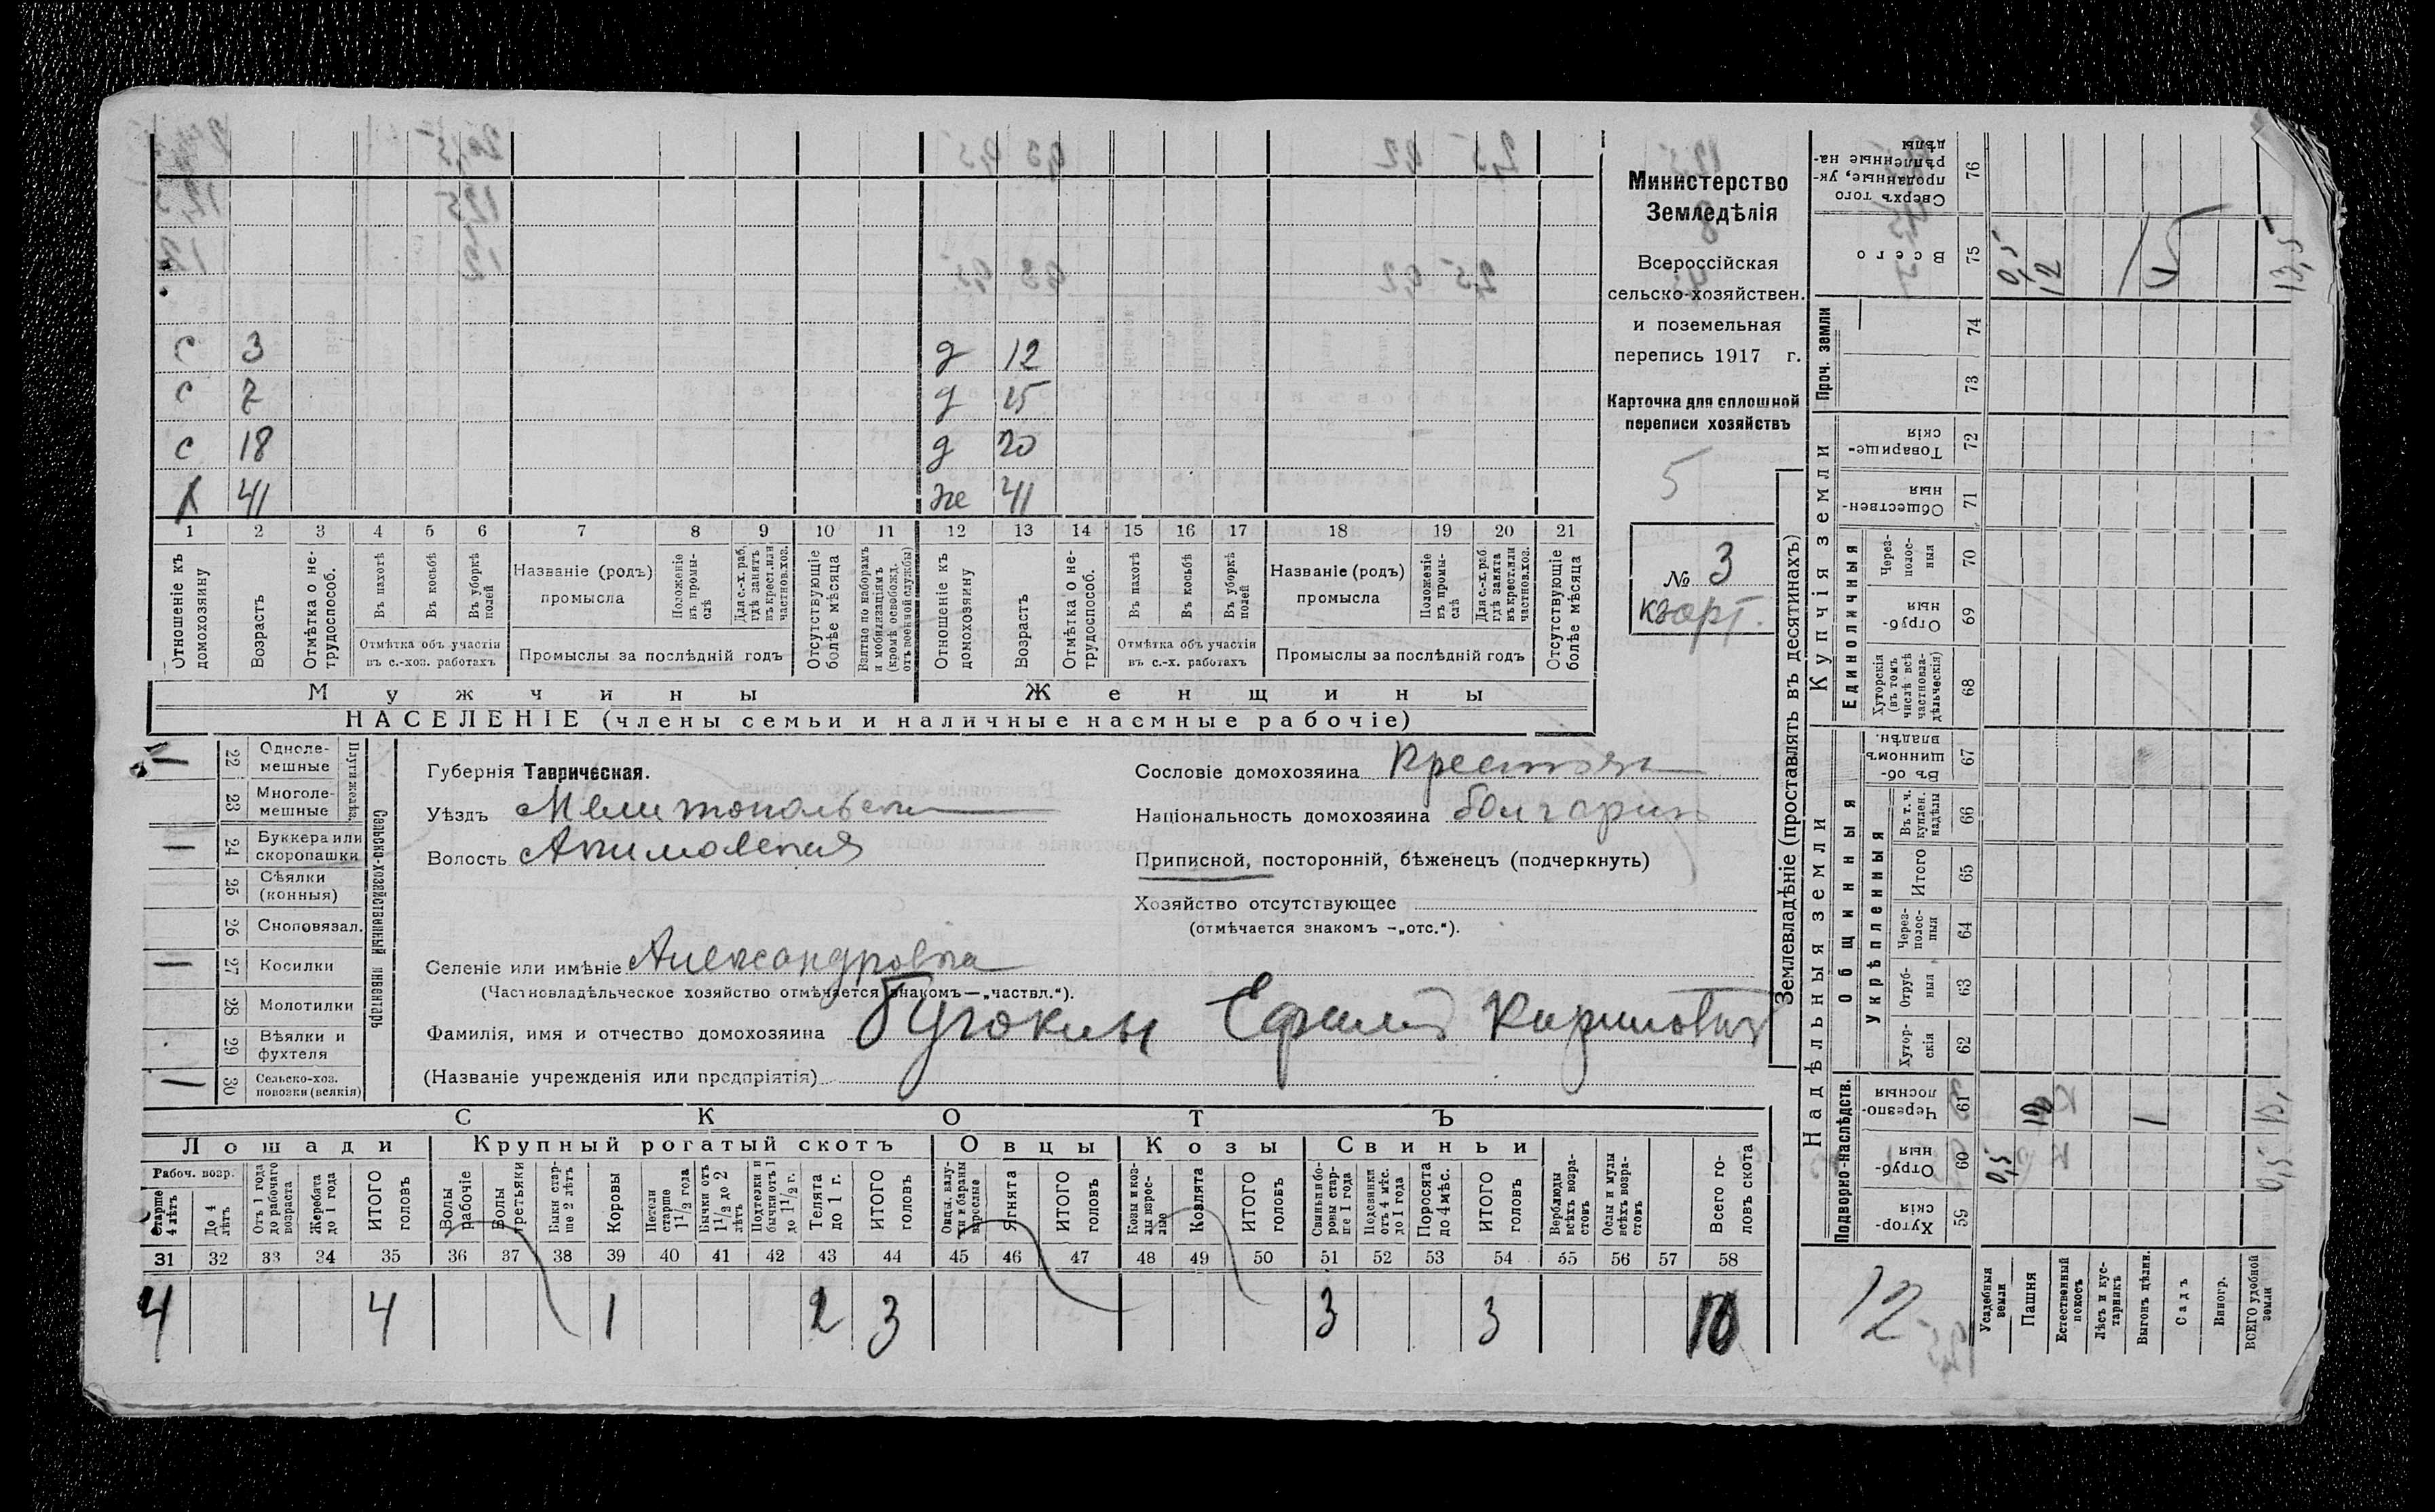 Министерство
Земледѣлія
Всероссійская
сельско-хозяйствен.
и поземельная
перепись 1917 г.
Карточка для сплошной
переписи хозяйствъ
5
№ 3
с 3 д 12
с 7 д 15
с 18 д 20
х 41 же 41
1 2 3 4 5 6 7 8 9 10 11 12 13 14 15 16 17 18 19 20 21
Отношеніе къ домохозяину
Возрастъ
Отмѣтка о нетрудоспособ.
Въ пахотѣ
Въ косьбѣ
Въ уборкѣ полей
Отмѣтка объ участіи
въ с.-хоз. работахъ
Названіе (родъ)
промысла
Положеніе въ промыслѣ
Для с.-х. раб. гдѣ занятъ въ крест. или частнов. хоз.
Промыслы за послѣдній годъ
Отсутствующіе болѣе мѣсяца
Взятые по наборамъ и мобилизаціямъ (кромѣ освобожд. отъ военной службы)
Отношеніе къ домохозяину
Возрастъ
Отмѣтка о нетрудоспособ.
Въ пахотѣ
Въ косьбѣ
Въ уборкѣ полей
Отмѣтка объ участіи
въ с.-х. работахъ
Названіе (родъ)
промысла
Положеніе въ промыслѣ
Для с.-х. раб. гдѣ занята въ крест. или частнов. хоз.
Промыслы за послѣдній годъ
Отсутствующіе болѣе мѣсяца
Мужчины Женщины
НАСЕЛЕНІЕ (члены семьи и наличные наемные рабочіе)
Сельско-хозяйственный инвентарь
Плуги желѣз.
22 Однолемешные 1
23 Многолемешные
24 Буккера или скоропашки 1
25 Сѣялки (конныя)
26 Сноповязал.
27 Косилки 1
28 Молотилки
29 Вѣялки и фухтеля
30 Сельско-хоз. повозки (всякія) 1
Губернія Таврическая.
Уѣздъ Мелитопольски
Волость Акимовская
Сословіе домохозяина Крестьян
Національность домохозяина болгарин
Приписной, посторонній, бѣженецъ (подчеркнуть)
Хозяйство отсутствующее
(отмѣчается знакомъ —„отс.“).
Селеніе или имѣніе Александровка
(Частновладѣльческое хозяйство отмѣчается знакомъ—„частвл.“).
Фамилія, имя и отчество домохозяина Ефим
(Названіе учрежденія или предпріятія)
СКОТЪ
Лошади Крупный рогатый скотъ Овцы Козы Свиньи
Рабоч. возр.
Старше 4 лѣтъ
До 4 лѣтъ
Отъ 1 года до рабочаго возраста
Жеребята до 1 года
ИТОГО головъ
Волы рабочіе
Волы третьяки
Быки старше 2 лѣтъ
Коровы
Нетели старше 1½ года
Бычки отъ 1½ до 2 лѣтъ
Подтелки и бычки отъ 1 до 1½ г.
Телята до 1 г.
ИТОГО головъ
Овцы, валухи и бараны взрослые
Ягнята
ИТОГО головъ
Козы и козлы взрослые
Козлята
ИТОГО головъ
Свиньи боровы старше 1 года
Подсвинки отъ 4 мѣс. до 1 года
Поросята до 4 мѣс.
ИТОГО головъ
Верблюды всѣхъ возрастовъ
Ослы и мулы всѣхъ возрастовъ
Всего головъ скота
31 32 33 34 35 36 37 38 39 40 41 42 43 44 45 46 47 48 49 50 51 52 53 54 55 56 57 58
4 4 1 2 3 3 3 10
Землевладѣніе (проставлять въ десятинахъ)
Надѣльныя земли Купчія земли Проч. земли
Подворно-наслѣдств. Общинныя Единоличныя
Укрѣпленныя
Хуторскія 59
Отрубныя 60
Черезполосныя 61
Хуторскія 62
Отрубныя 63
Черезполосныя 64
Итого 65
Въ т. ч. куплен. надѣлы 66
Въ общинномъ владѣн. 67
Хуторскія (въ томъ числѣ всѣ частновладѣльческія) 68
Отрубныя 69
Черезполосныя 70
Общественныя 71
Товарищескія 72
73
74
Всего 75
Сверхъ того проданные, укрѣпленные надѣлы 76
12
Усадебныя земли 0,5 0,5
Пашня 12 12
Естественный покосъ
Лѣсъ и кустарникъ
Выгонъ цѣлин. 1
Садъ
Виногр.
ВСЕГО удобной земли 0,5 13, 13,5